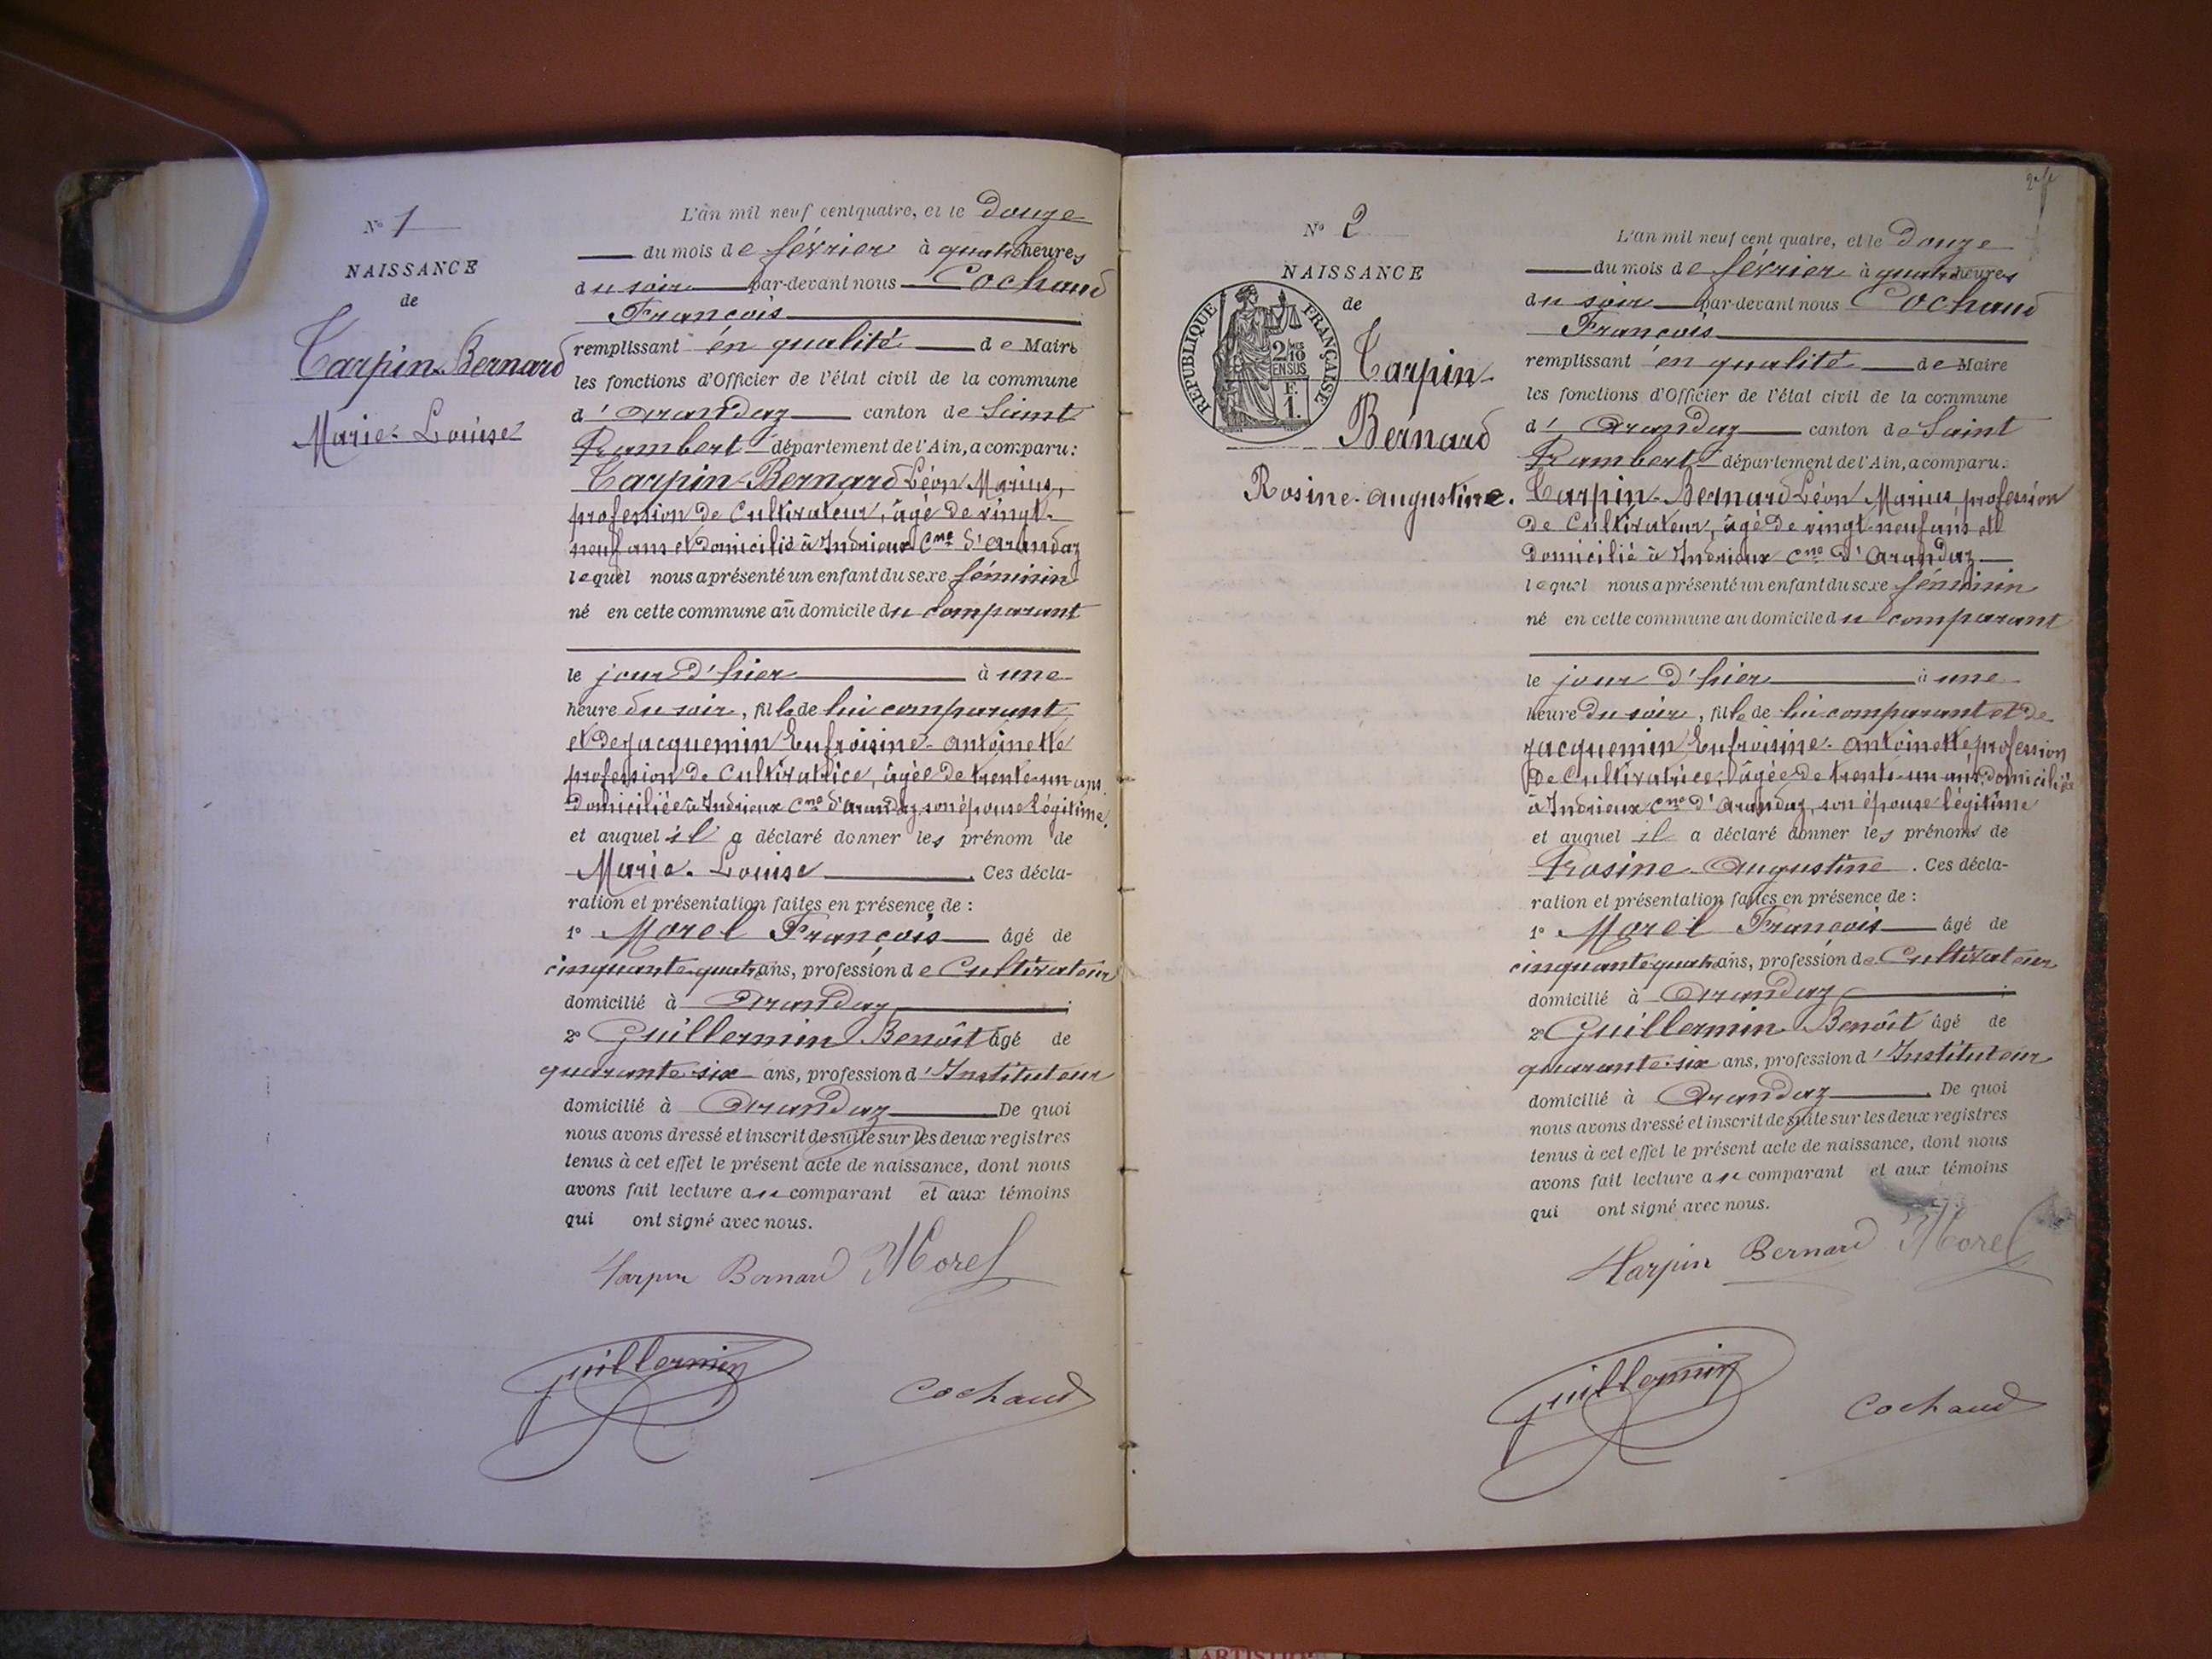 N° 1
NAISSANCE
de
Tarpin-Bernard
Marie-Louise
L'an mil neuf cent quatre, et le douze
du mois de février à quatre heures
du soir par-devant nous Cochand
François
remplissant en qualité de Maire
les fonctions d'Officier de l'état civil de la commune
d'Arandaz canton de Saint
Rambert département de l'Ain, a comparu:
Tarpin-Bernard Léon Marius,
profession de Cultivateur, âgé de vingt-
neuf ans et domicilié à Indrieux Cne d'Arandaz
lequel nous a présenté un enfant du sexe féminin
né en cette commune au domicile du comparant
le jour d'hier à une
heure du soir, fille de lui comparant
et de Jacquemin Eufroisine-Antoinette
profession de Cultivatrice, âgée de trente-un ans
domiciliée à Indrieux Cne d'Arandaz, son épouse légitime,
et auquel il a déclaré donner les prénom de
Marie-Louise. Ces décla-
ration et présentation faites en présence de :
1° Morel François âgé de
cinquante-quatre ans, profession de Cultivateur
domicilié à Arandaz;
2° Guillermin Benoît âgé de
quarante-six ans, profession d'Instituteur
domicilié à Arandaz De quoi
nous avons dressé et inscrit de suite sur les deux registres
tenus à cet effet le présent acte de naissance, dont nous
avons fait lecture au comparant et aux témoins
qui ont signé avec nous.
Tarpin Bernard Morel
Guillermin Cochaud
N° 2
NAISSANCE
de
RÉPUBLIQUE FRANÇAISE
2/10 MES
EN SUS
F.
1.
Tarpin-
Bernard
Rosine-Augustine.
L'an mil neuf cent quatre, et le douze
du mois de février à quatre heures
du soir par-devant nous Cochaud
François
remplissant en qualité de Maire
les fonctions d'Officier de l'état civil de la commune
d'Arandaz canton de Saint
Rambert département de l'Ain, a comparu.
Tarpin-Bernard Léon Marius profession
de Cultivateur, âgé de vingt-neuf ans et
domicilié à Indrieux Cne d'Arandaz
lequel nous a présenté un enfant du sexe féminin
né en cette commune au domicile du comparant
le jour d'hier à une
heure du soir, fille de lui comparant et de
Jacquemin Eufroisine-Antoinette profession
de Cultivatrice, âgée de trente-un ans domiciliée
à Indrieux Cne d'Arandaz, son épouse légitime
et auquel il a déclaré donner les prénoms de
Rosine-Augustine. Ces décla-
ration et présentation faites en présence de :
1° Morel François âgé de
cinquante-quatre ans, profession de Cultivateur
domicilié à Arandaz;
2° Guillermin Benoît âgé de
quarante-six ans, profession d'Instituteur
domicilié à Arandaz. De quoi
nous avons dressé et inscrit de suite sur les deux registres
tenus à cet effet le présent acte de naissance, dont nous
avons fait lecture au comparant et aux témoins
qui ont signé avec nous.
Tarpin Bernard Morel
Guillermin Cochaud